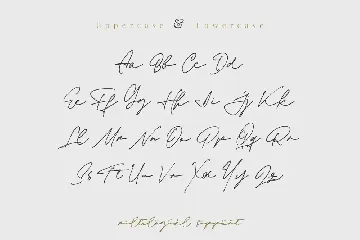 Uppercase & Lowercase
Aa Bb Cc Dd
Ee Ff Gg Hh Ii Jj Kk
Ll Mm Nn Oo Pp Qq Rr
Ss Tt Uu Vv Xx Yy Zz
multilingual support